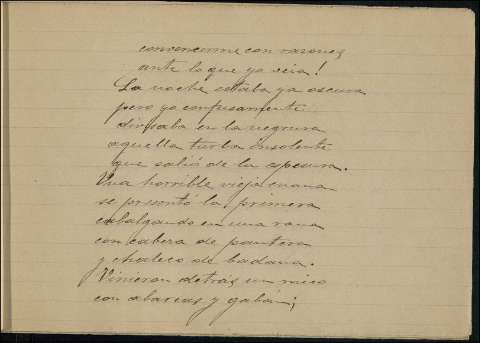 convencerme con razones
ante lo que yo veía!
La noche estaba ya oscura
pero yo confusamente
divisaba en la negrura
aquella turba insolente
que salió de la espesura.
Una horrible vieja enana
se presentó la primera
cabalgando en una rana
con cabeza de pantera
y chaleco de badana.
Vinieron detrás un mico
con abarcas y gabán;